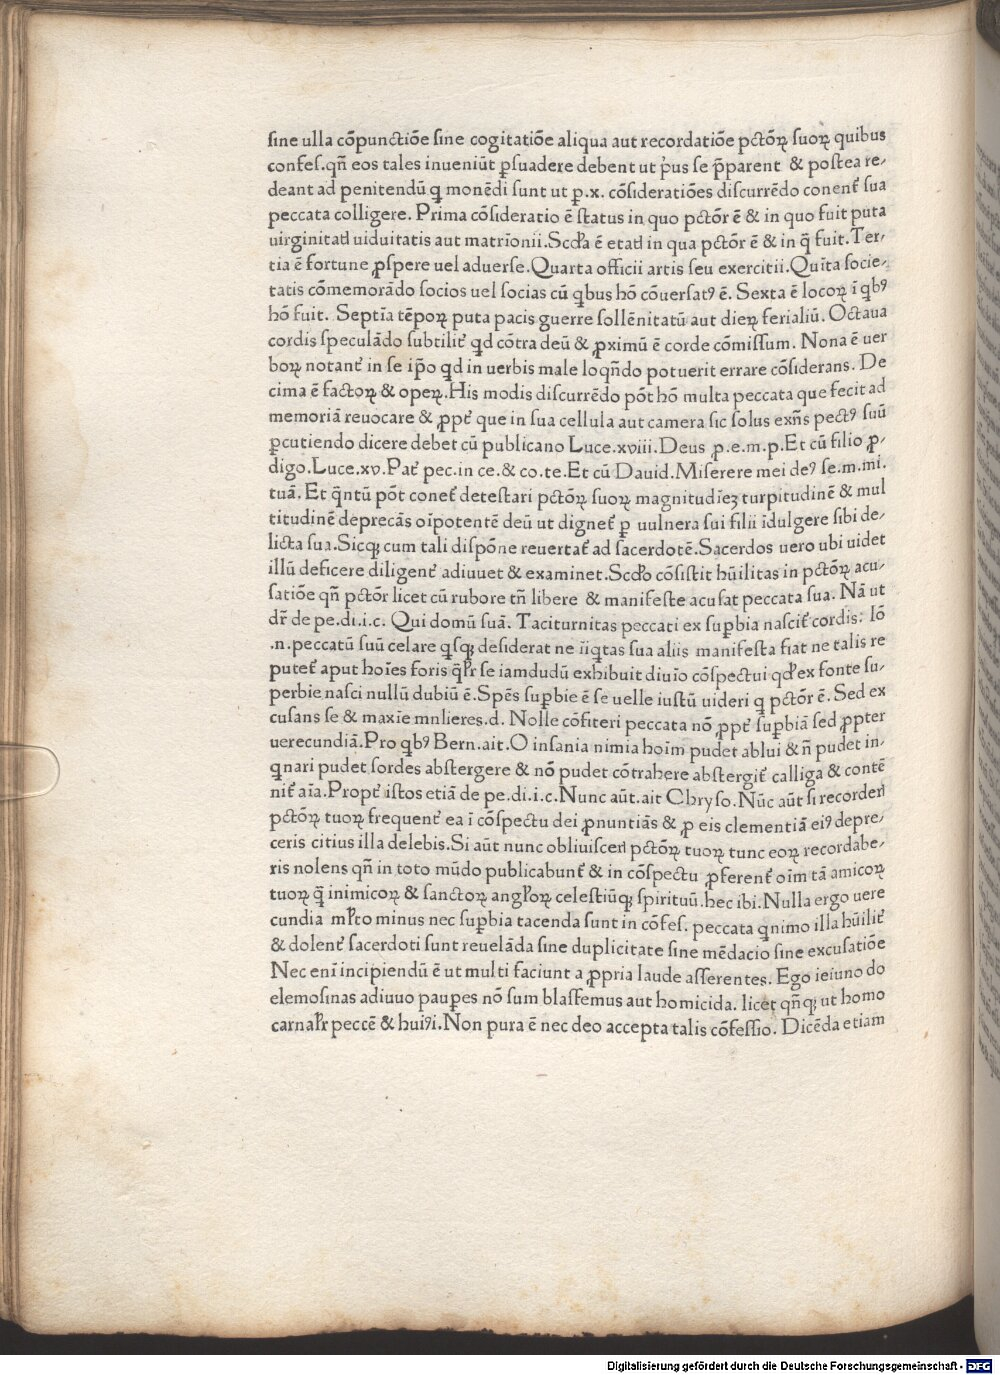 sine ulla cōpunctiōe sine cogitatiōe aliqua aut recordatiōe pctōꝝ suoꝝ quibus
confes.qn̄ eos tales inueniūt ꝑsuadere debent ut p̍us se p̄parent & postea re⸗
deant ad penitendū ꝗ monēdi sunt ut ꝑ.x. cōsideratiōes discurrēdo conent᷑ sua
peccata colligere. Prima cōsideratio ē status in quo pctōr ē & in quo fuit puta
uirginitatꝭ uiduitatis aut matrīonii.Scd̄a ē etatꝭ in qua pctōr ē & in q̄ fuit.Ter⸗
tia ē fortune ꝓspere uel aduerse.Quarta officii artis seu exercitii.Quīta socie⸗
tatis cōmemorādo socios uel socias cū ꝗbus hō cōuersatꝰ ē. Sexta ē locoꝝ ī ꝗbꝰ
hō fuit. Septīa tēpoꝝ puta pacis guerre sollēnitatū aut dieꝝ ferialiū. Octaua
cordis speculādo subtilit᷑ ꝗd cōtra deū & ꝓximū ē corde cōmissum. Nona ē uer
boꝝ notant᷑ in se ip̄o ꝗd in uerbis male loqn̄do potuerit errare cōsiderans. De
cima ē factoꝝ & opeꝝ.His modis discurrēdo pōt hō multa peccata que fecit ad
memoriā reuocare & ꝓpt᷑ que in sua cellula aut camera sic solus exn̄s pectꝰ suū
ꝑcutiendo dicere debet cū publicano Luce.xviii.Deus ꝓ.e.m.p.Et cū filio ꝓ⸗
digo.Luce.xv.Pat᷑ pec.in ce.& co.te.Et cū Dauid.Miserere mei deꝰ se.m.mi.
tuā. Et q̄ntū pōt conet᷑ detestari pctōꝝ suoꝝ magnitudīeʒ turpitudinē & mul
titudinē deprecās oīpotentē deū ut dignet᷑ ꝑ uulnera sui filii īdulgere sibi de⸗
licta sua.Sicqꝫ cum tali dispōne reuertat᷑ ad sacerdotē.Sacerdos uero ubi uidet
illū deficere diligent᷑ adiuuet & examinet.Scd̄o cōsistit hūilitas in pctōꝝ acu⸗
satiōe qn̄ pctōr licet cū rubore tn̄ libere & manifeste acusat peccata sua. Nā ut
dr̄ de pe.di.i.c. Qui domū suā. Taciturnitas peccati ex suꝑbia nascit᷑ cordis: Iō
.n.peccatū suū celare ꝗsqꝫ desiderat ne īiqtas sua aliis manifesta fiat ne talis re
putet᷑ aput hoīes foris q̄lr̄ se iamdudū exhibuit diuīo cōspectui qd̄ ex fonte su⸗
perbie nasci nullū dubiū ē.Spēs suꝑbie ē se uelle iustū uideri q pctōr ē. Sed ex
cusans se & maxīe mnlieres.d. Nolle cōfiteri peccata nō ꝓpt᷑ suꝑbiā sed ꝓpter
uerecundiā.Pro ꝗbꝰ Bern.ait.O insania nimia hoīm pudet ablui & n̄ pudet in⸗
ꝗnari pudet sordes abstergere & nō pudet cōtrahere abstergit᷑ calliga & contē
nit᷑ aīa.Propt᷑ istos etiā de pe.di.i.c.Nunc aūt.ait Chryso.Nūc aūt si recorderꝭ
pctōꝝ tuoꝝ frequent᷑ ea ī cōspectu dei ꝓnuntiās & ꝓ eis clementiā eiꝰ depre⸗
ceris citius illa delebis.Si aūt nunc obliuiscerꝭ pctōꝝ tuoꝝ tunc eoꝝ recordabe⸗
ris nolens qn̄ in toto mūdo publicabunt᷑ & in cōspectu ꝓferent᷑ oīm tā amicoꝝ
tuoꝝ q̄ inimicoꝝ & sanctoꝝ angl̄oꝝ celestiūqꝫ spirituū.hec ibi.Nulla ergo uere
cundia ml̄to minus nec suꝑbia tacenda sunt in cōfes. peccata ꝗnimo illa hūilit᷑
& dolent᷑ sacerdoti sunt reuelāda sine duplicitate sine mēdacio sine excusatiōe
Nec enī incipiendū ē ut multi faciunt a ꝓpria laude asserentes. Ego ieiuno do
elemosinas adiuuo pauꝑes nō sum blasfemus aut homicida. licet qn̄qꝫ ut homo
carnal̄r peccē & huiꝰi.Non pura ē nec deo accepta talis cōfessio. Dicēda etiam
Digitalisierung gefördert durch die Deutsche Forschungsgemeinschaft - DFG